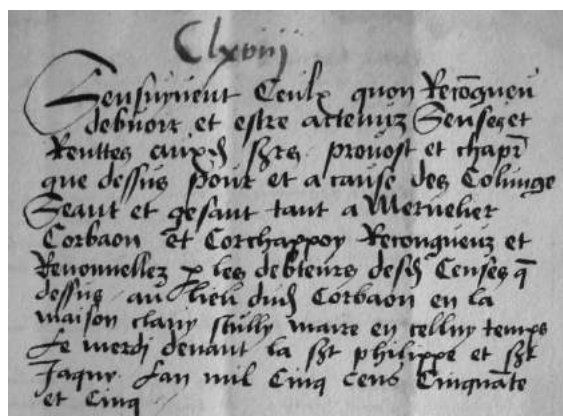 Clxviij
Sensuyvent Ceulx quon Recongneu
debvoir et estre actenuz Senses et
Renttes auxd srs provost et chapre
que dessus pour et a cause des Colunge
Seant et gesant tant a Mervelier
Corbaon et Corchappoy Recongneuz et
Renonnellez p les debteurs desd Censes q
dessus au lieu dud Corbaon en la
maison clauy maire en celluy temps
Le devant la st philippe et st
Jaquy Lan mil Cinq cens Cinquate
et Cinq